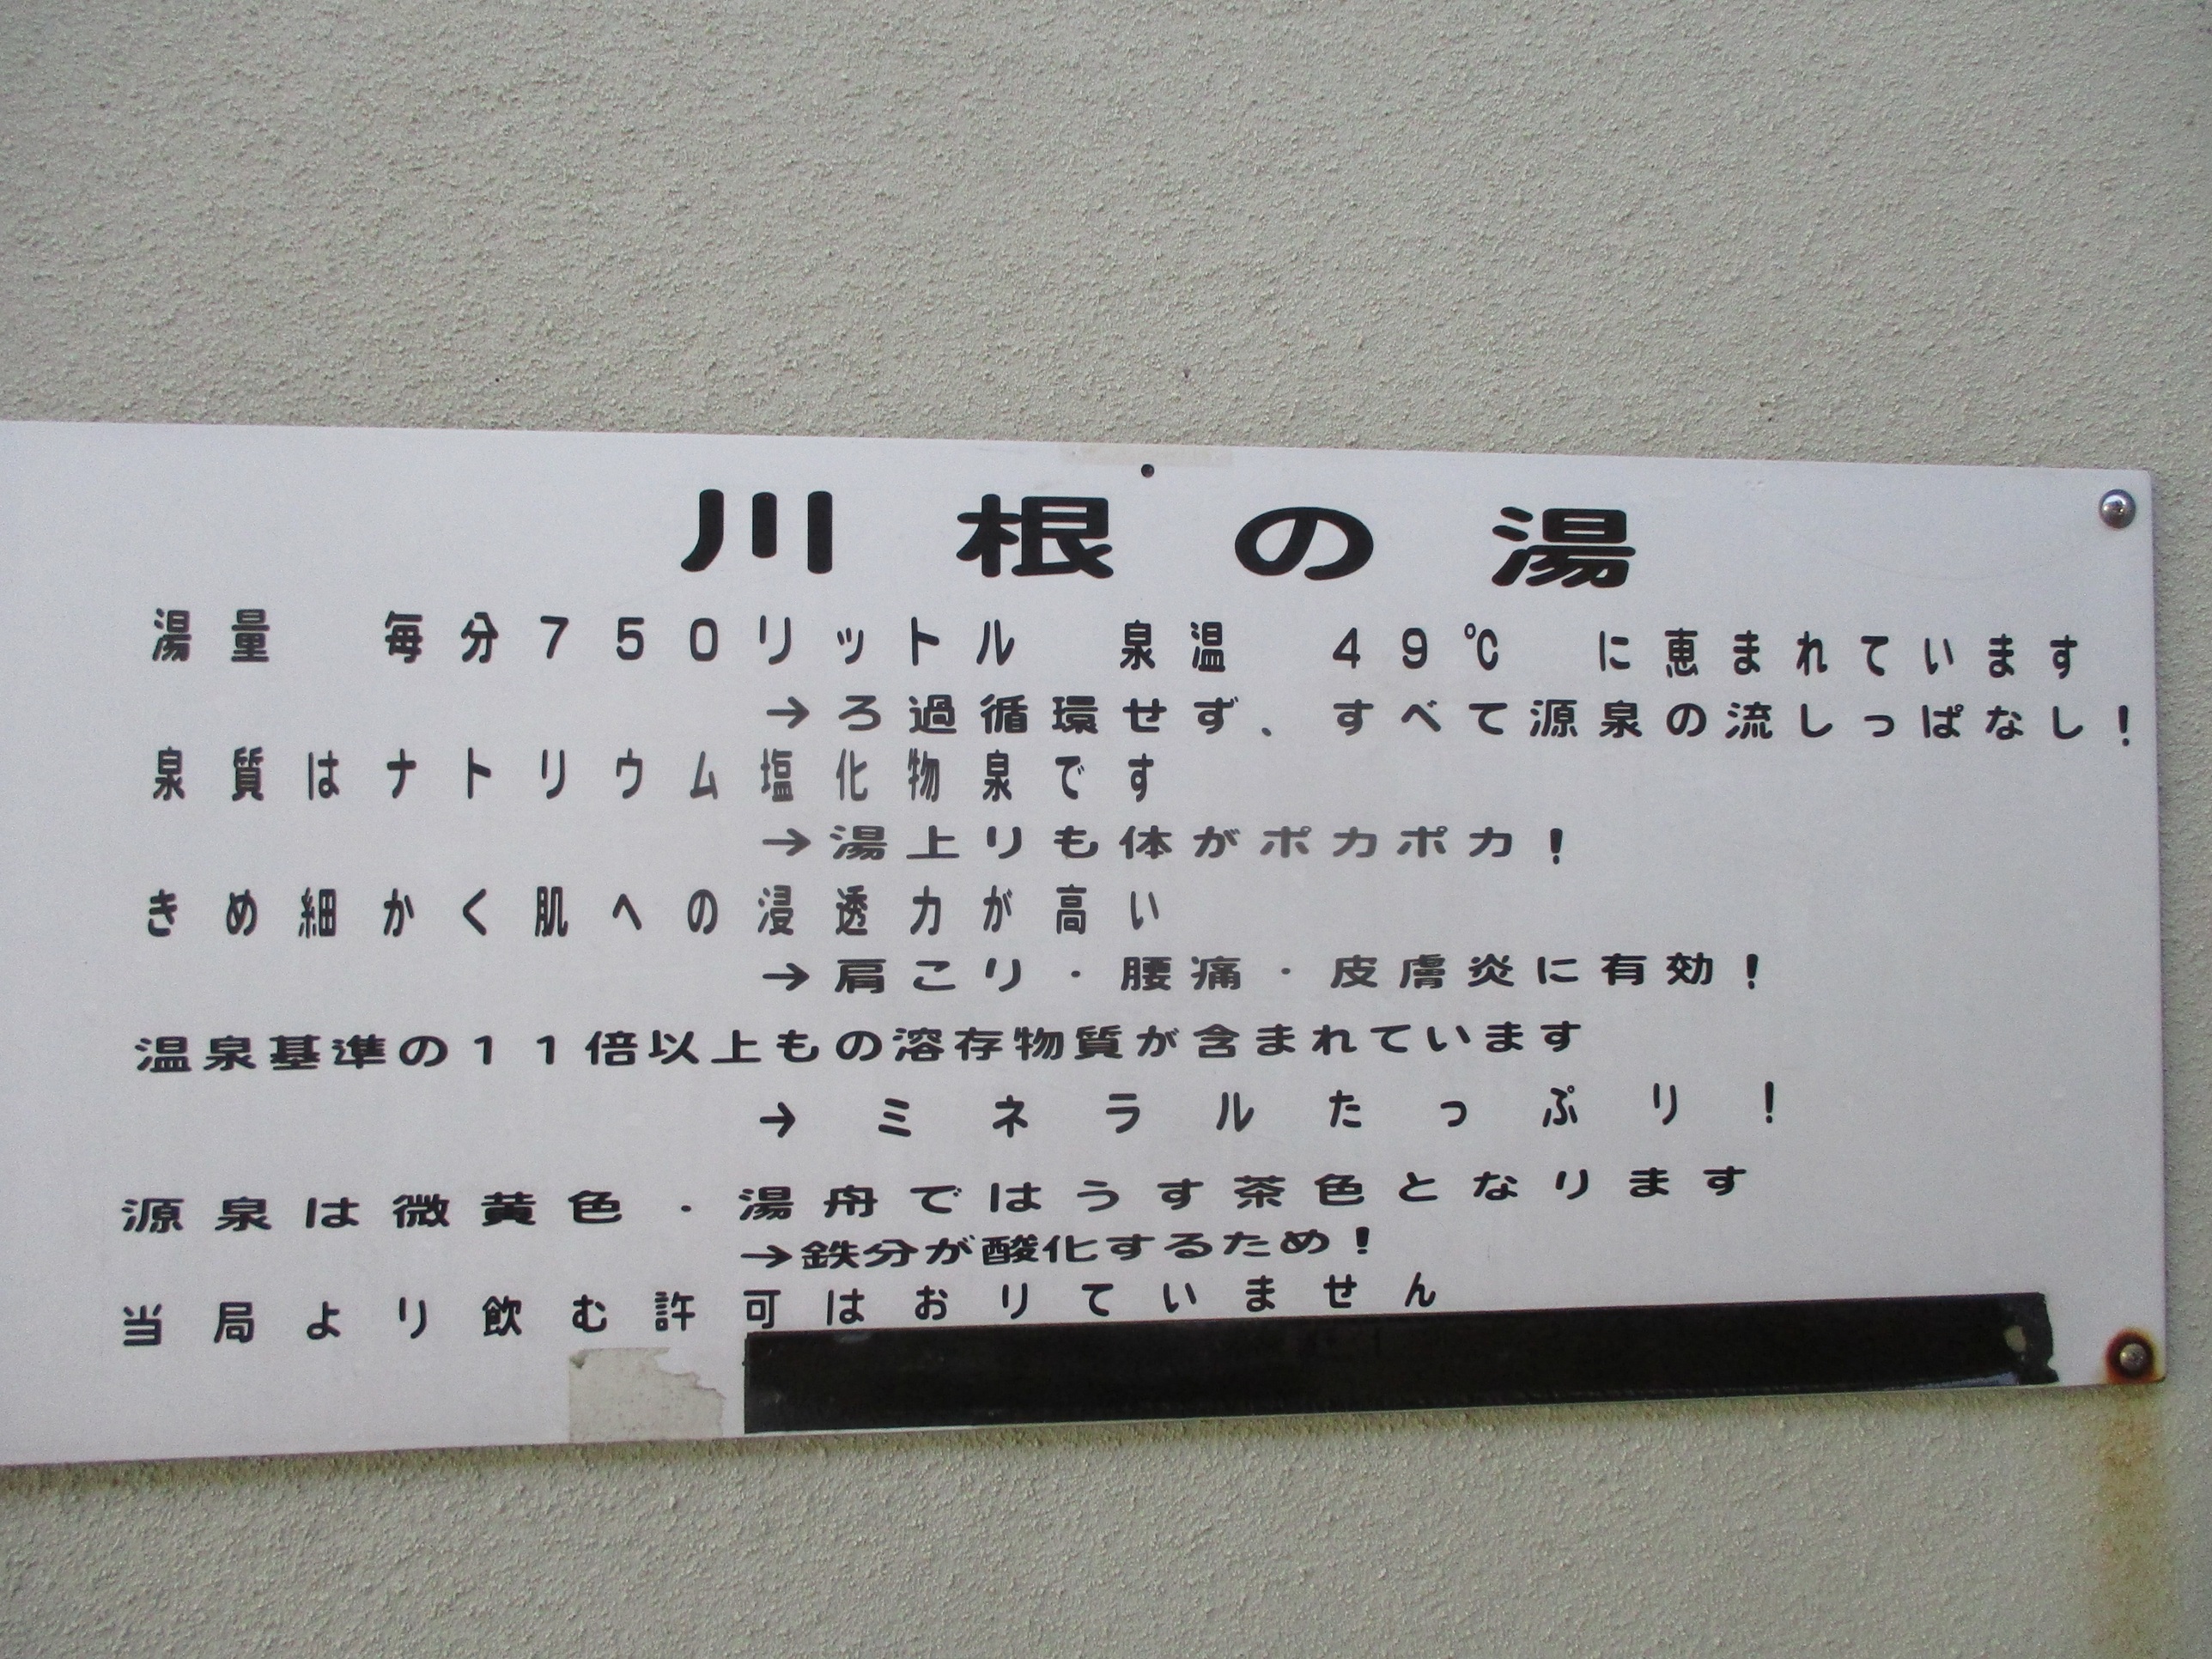 川根の湯
湯量　毎分７５０リットル　泉温　４９℃　に恵まれています
→ろ過循環せず、すべて源泉の流しっぱなし！
泉質はナトリウム塩化物泉です
→湯上りも体がポカポカ！
きめ細かく肌への浸透力が高い
→肩こり・腰痛・皮膚炎に有効！
温泉基準の１１倍以上もの溶存物質が含まれています
→ミネラルたっぷり！
源泉は微黄色・湯舟ではうす茶色となります
→鉄分が酸化するため！
当局より飲む許可はおりていません